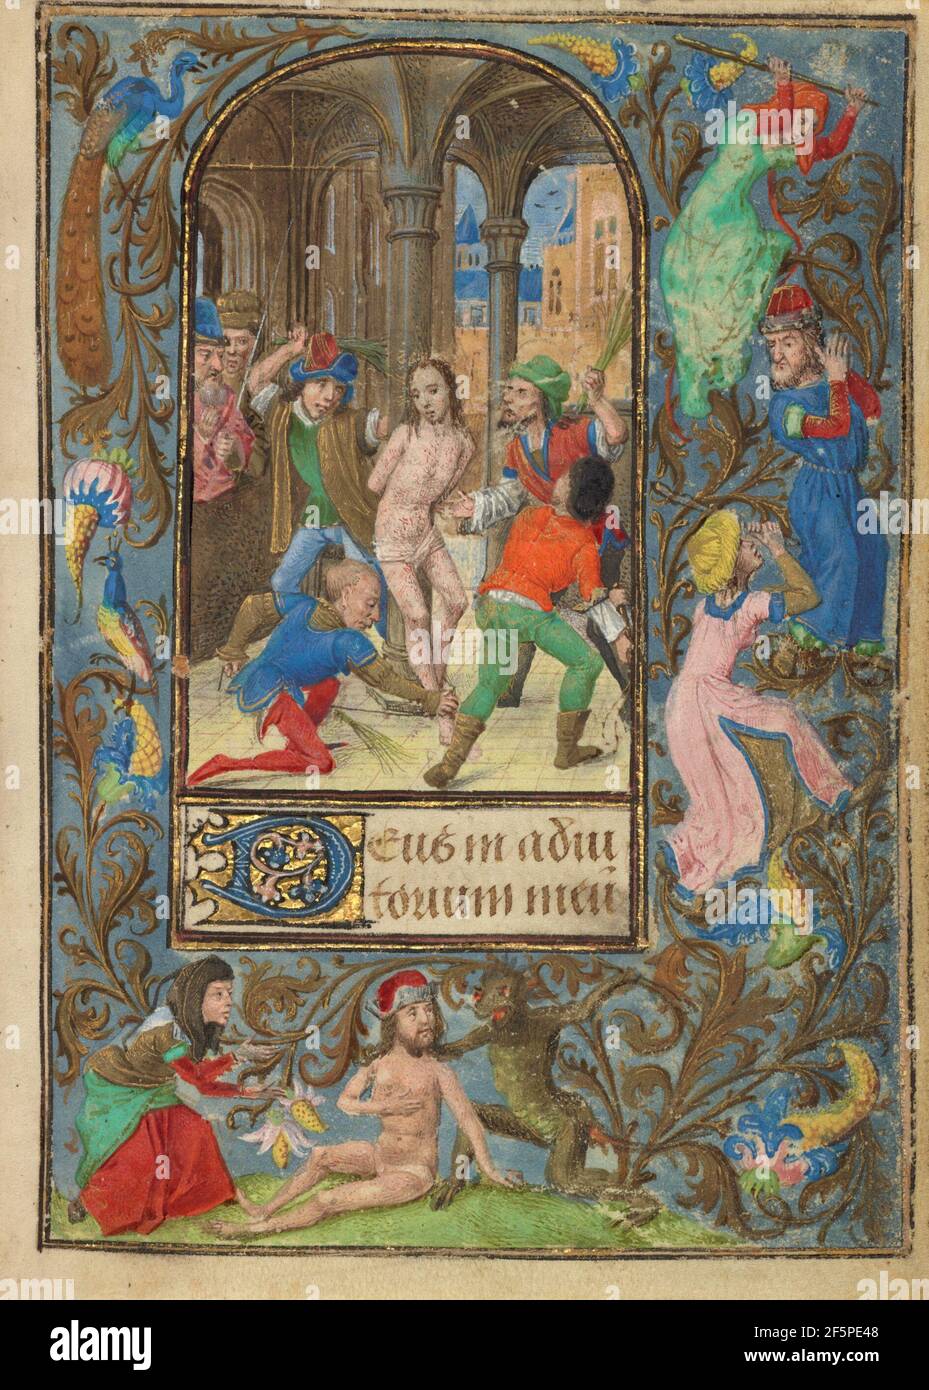 Deus in adiu
torium meū
alamy
Image ID: 2F5PE48
www.alamy.com